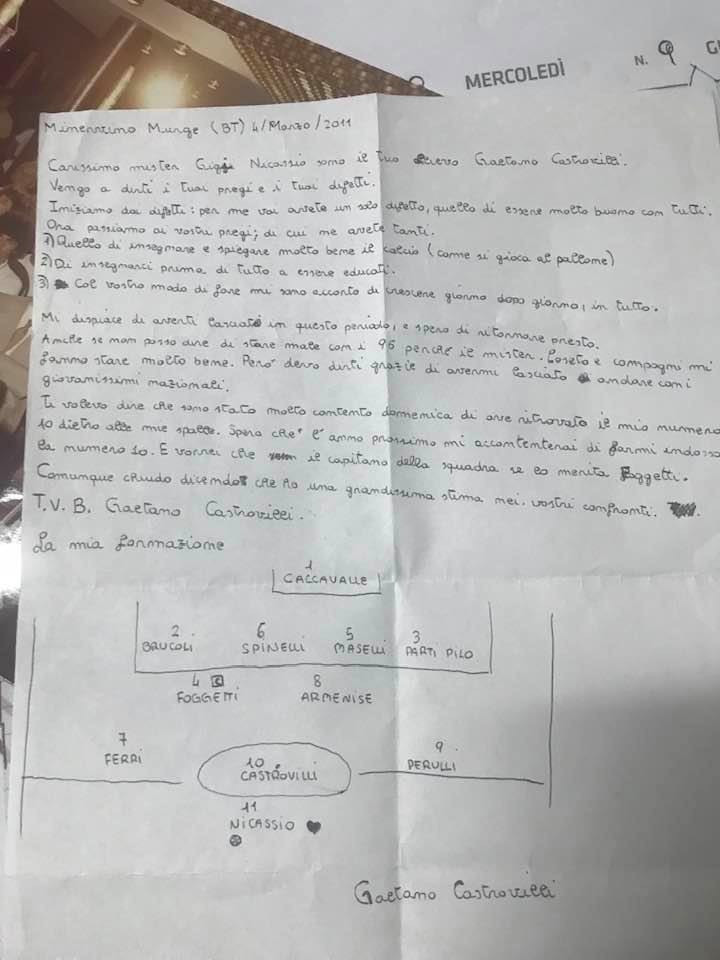 MERCOLEDÌ
N. 9
Minervino Murge (BT) 4/Marzo/2011
Carissimo mister Gigi Nicassio sono il tuo allievo Gaetano Castrovilli.
Vengo a dirti i tuoi pregi e i tuoi difetti.
Iniziamo dai difetti: per me voi avete un solo difetto, quello di essere molto buono con tutti.
Ora passiamo ai vostri pregi; di cui me avete tanti.
1) Quello di insegnare e spiegare molto bene il calcio (come si gioca al pallone)
2) Di insegnarci prima di tutto a essere educati.
3) Col vostro modo di fare mi sono accorto di crescere giorno dopo giorno, in tutto.
Mi dispiace di averti lasciato in questo periodo, e spero di ritornare presto.
Anche se non posso dire di stare male con i 96 perché il mister. Loseto e compagni mi
fanno stare molto bene. Però devo dirti grazie di avermi lasciato andare con i
giovanissimi nazionali.
Ti volevo dire che sono stato molto contento domenica di ave ritrovato il mio numero
10 dietro alle mie spalle. Spero che l'anno prossimo mi accontenterai di farmi indossa
la numero 10. E vorrei che il capitano della squadra se lo merita Foggetti.
Comunque chiudo dicendo che ho una grandissima stima nei. vostri confronti.
T.V.B. Gaetano Castrovilli.
La mia formazione
1
CACCAVALLE
2 6 5 3
BRUCOLI SPINELLI MASELLI PARTIPILO
4 C 8
FOGGETTI ARMENISE
7 9
FERRI PERULLI
10
CASTROVILLI
11
NICASSIO
Gaetano Castrovilli